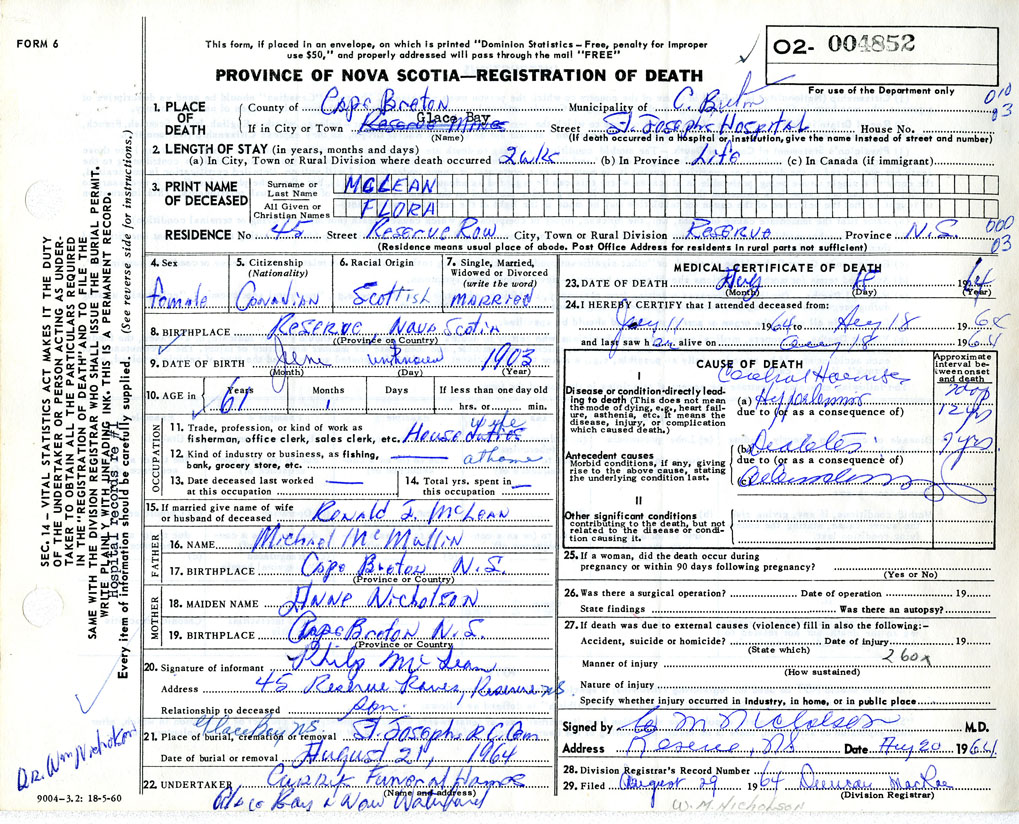 FORM 6
This form, if placed in an envelope, on which is printed "Dominion Statistics – Free, penalty for improper
use $50," and properly addressed will pass through the mail "FREE"
PROVINCE OF NOVA SCOTIA—REGISTRATION OF DEATH
O2- 004852
For use of the Department only
010
03
1. PLACE OF DEATH
County of Cape Breton Municipality of C. Breton
Glace Bay
If in City or Town Reserve Mines Street St. Joseph's Hospital House No.
(Name) (If death occurred in a hospital or institution, give the name instead of street and number)
2. LENGTH OF STAY (in years, months and days)
(a) In City, Town or Rural Division where death occurred 2 wks (b) In Province Life (c) In Canada (if immigrant)
3. PRINT NAME OF DECEASED
Surname or Last Name MCLEAN
All Given or Christian Names FLORA
RESIDENCE No 45 Street Reserve Row City, Town or Rural Division Reserve Province N.S.
000
03
(Residence means usual place of abode. Post Office Address for residents in rural parts not sufficient)
4. Sex female
5. Citizenship (Nationality) Canadian
6. Racial Origin Scottish
7. Single, Married, Widowed or Divorced (write the word) MARRIED
8. BIRTHPLACE Reserve, Nova Scotia
(Province or Country)
9. DATE OF BIRTH June unknown 1903
(Month) (Day) (Year)
10. AGE in Years 61 Months 1 Days If less than one day old hrs. or min.
OCCUPATION
11. Trade, profession, or kind of work as
fisherman, office clerk, sales clerk, etc. House wife
12. Kind of industry or business, as fishing,
bank, grocery store, etc. at home
13. Date deceased last worked at this occupation
14. Total yrs. spent in this occupation
15. If married give name of wife
or husband of deceased Ronald J. McLean
FATHER
16. NAME Michael McMullin
17. BIRTHPLACE Cape Breton N.S.
(Province or Country)
MOTHER
18. MAIDEN NAME Anne Nicholson
19. BIRTHPLACE Cape Breton N.S.
(Province or Country)
20. Signature of informant Philip McLean
Address 45 Reserve Rows, Reserve NS
Relationship to deceased son
Glace Bay NS
21. Place of burial, cremation or removal St Joseph R.C. Cem
Date of burial or removal August 21, 1964
22. UNDERTAKER Currik Funeral Home
(Name and address)
Glace Bay & New Waterford
9004–3.2: 18-5-60
MEDICAL CERTIFICATE OF DEATH
23. DATE OF DEATH Aug 18 1964
(Month) (Day) (Year)
24. I HEREBY CERTIFY that I attended deceased from:
11 1964 to Aug 18 1964
and last saw h er alive on August 18 1964
CAUSE OF DEATH
Approximate interval between onset and death
I
Disease or condition directly leading to death (This does not mean the mode of dying, e.g., heart failure, asthenia, etc. It means the disease, injury, or complication which caused death.)
Cerebral
(a)
due to (or as a consequence of) 12 yrs
Antecedent causes
Morbid conditions, if any, giving rise to the above cause, stating the underlying condition last.
(b) Diabetes yrs.
due to (or as a consequence of)
(c)
II
Other significant conditions
contributing to the death, but not related to the disease or condition causing it.
25. If a woman, did the death occur during
pregnancy or within 90 days following pregnancy?
(Yes or No)
26. Was there a surgical operation? Date of operation 19
State findings Was there an autopsy?
27. If death was due to external causes (violence) fill in also the following:-
Accident, suicide or homicide? Date of injury 19
(State which)
260x
Manner of injury
(How sustained)
Nature of injury
Specify whether injury occurred in industry, in home, or in public place
Signed by W M Nicholson M.D.
Address Reserve, NS Date Aug 20 1964
28. Division Registrar's Record Number
29. Filed August 29 1964 Duncan MacRae
(Division Registrar)
W. M. Nicholson
SEC. 14 – VITAL STATISTICS ACT MAKES IT THE DUTY
OF THE UNDERTAKER OR PERSON ACTING AS UNDER-
TAKER TO OBTAIN ALL THE PARTICULARS REQUIRED
IN THE "REGISTRATION OF DEATH" AND TO FILE THE
SAME WITH THE DIVISION REGISTRAR WHO SHALL ISSUE THE BURIAL PERMIT.
WRITE PLAINLY WITH UNFADING INK. THIS IS A PERMANENT RECORD.
Hospital records re #1
Every item of information should be carefully supplied. (See reverse side for instructions.)
Dr. Wm Nicholson